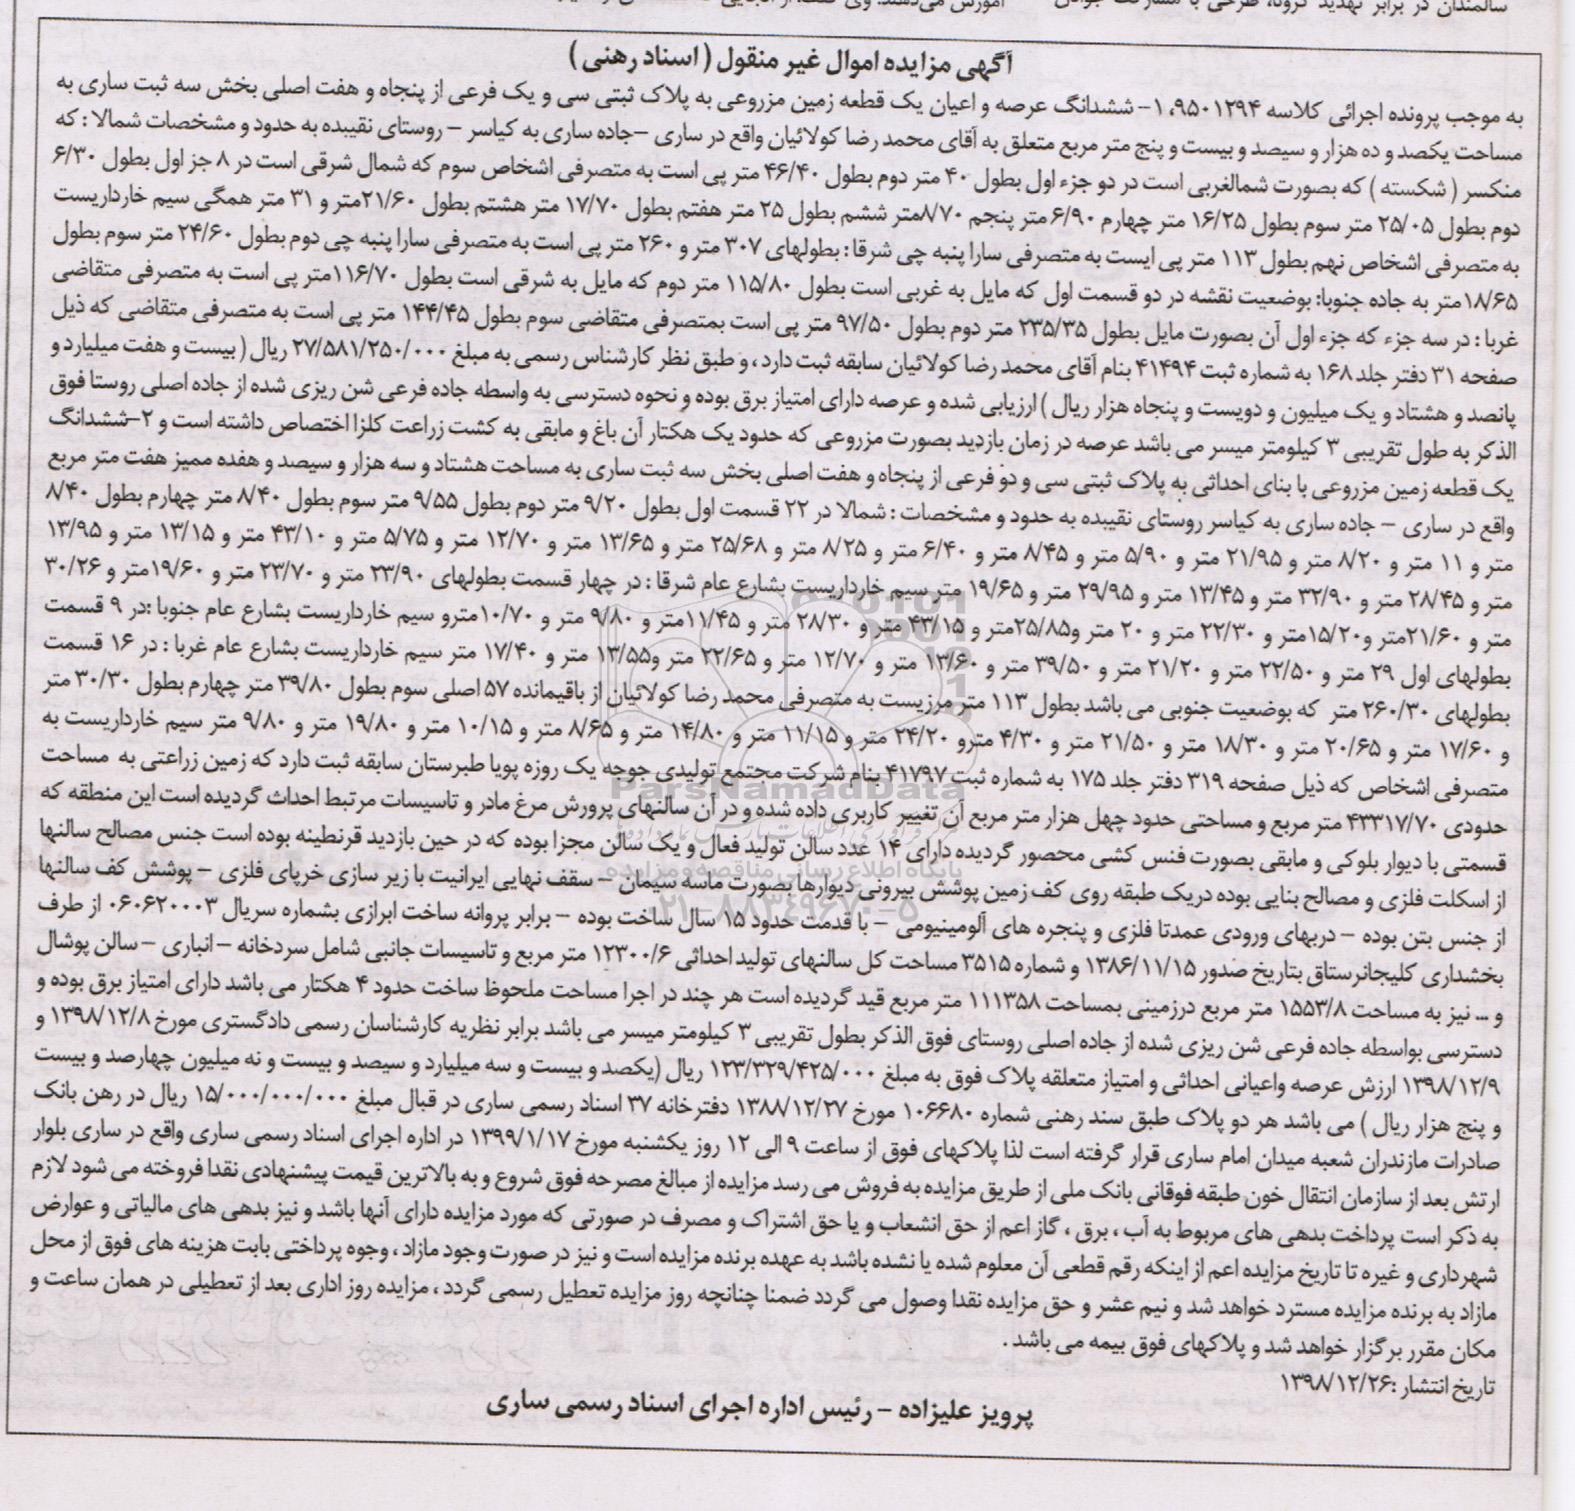 آگهی مزایده اموال غیر منقول ( اسناد رهنی )
به موجب پرونده اجرائی کلاسه ۹۵۰۱۲۹۴، ۱- ششدانگ عرصه و اعیان یک قطعه زمین مزروعی به پلاک ثبتی سی و یک فرعی از پنجاه و هفت اصلی بخش سه ثبت ساری به
مساحت یکصد و ده هزار و سیصد و بیست و پنج متر مربع متعلق به آقای محمد رضا کولائیان واقع در ساری -جاده ساری به کیاسر - روستای نقیبده به حدود و مشخصات شمالا : که
منکسر ( شکسته ) که بصورت شمالغربی است در دو جزء اول بطول ۴۰ متر دوم بطول ۴۶/۴۰ متر پی است به متصرفی اشخاص سوم که شمال شرقی است در ۸ جز اول بطول ۶/۳۰
دوم بطول ۲۵/۰۵ متر سوم بطول ۱۶/۲۵ متر چهارم ۶/۹۰ متر پنجم ۸/۷۰متر ششم بطول ۲۵ متر هفتم بطول ۱۷/۷۰ متر هشتم بطول ۲۱/۶۰متر و ۳۱ متر همگی سیم خارداریست
به متصرفی اشخاص نهم بطول ۱۱۳ متر پی ایست به متصرفی سارا پنبه چی شرقا : بطولهای ۳۰۷ متر و ۲۶۰ متر پی است به متصرفی سارا پنبه چی دوم بطول ۲۴/۶۰ متر سوم بطول
۱۸/۶۵متر به جاده جنوبا: بوضعیت نقشه در دو قسمت اول که مایل به غربی است بطول ۱۱۵/۸۰ متر دوم که مایل به شرقی است بطول ۱۱۶/۷۰متر پی است به متصرفی متقاضی
غربا : در سه جزء که جزء اول آن بصورت مایل بطول ۲۳۵/۳۵ متر دوم بطول ۹۷/۵۰ متر پی است بمتصرفی متقاضی سوم بطول ۱۴۴/۴۵ متر پی است به متصرفی متقاضی که ذیل
صفحه ۳۱ دفتر جلد ۱۶۸ به شماره ثبت ۴۱۴۹۴ بنام آقای محمد رضا کولائیان سابقه ثبت دارد ، و طبق نظر کارشناس رسمی به مبلغ ۲۷/۵۸۱/۲۵۰/۰۰۰ ریال ( بیست و هفت میلیارد و
پانصد و هشتاد و یک میلیون و دویست و پنجاه هزار ریال ) ارزیابی شده و عرصه دارای امتیاز برق بوده و نحوه دسترسی به واسطه جاده فرعی شن ریزی شده از جاده اصلی روستا فوق
الذکر به طول تقریبی ۳ کیلومتر میسر می باشد عرصه در زمان بازدید بصورت مزروعی که حدود یک هکتار آن باغ و مابقی به کشت زراعت کلزا اختصاص داشته است و ۲-ششدانگ
یک قطعه زمین مزروعی با بنای احداثی به پلاک ثبتی سی و دو فرعی از پنجاه و هفت اصلی بخش سه ثبت ساری به مساحت هشتاد و سه هزار و سیصد و هفده ممیز هفت متر مربع
واقع در ساری - جاده ساری به کیاسر روستای نقیبده به حدود و مشخصات : شمالا در ۲۲ قسمت اول بطول ۹/۲۰ متر دوم بطول ۹/۵۵ متر سوم بطول ۸/۴۰ متر چهارم بطول ۸/۴۰
متر و ۱۱ متر و ۸/۲۰ متر و ۲۱/۹۵ متر و ۵/۹۰ متر و ۸/۴۵ متر و ۶/۴۰ متر و ۸/۲۵ متر و ۲۵/۶۸ متر و ۱۳/۶۵ متر و ۱۲/۷۰ متر و ۵/۷۵ متر و ۴۳/۱۰ متر و ۱۳/۱۵ متر و ۱۳/۹۵
متر و ۲۸/۴۵ متر و ۳۲/۹۰ متر و ۱۳/۴۵ متر و ۲۹/۹۵ متر و ۱۹/۶۵ متر سیم خارداریست بشارع عام شرقا : در چهار قسمت بطولهای ۲۳/۹۰ متر و ۲۳/۷۰ متر و ۱۹/۶۰متر و ۳۰/۲۶
متر و ۲۱/۶۰متر و۱۵/۲۰متر و ۲۲/۳۰ متر و ۲۰ متر و۲۵/۸۵متر و ۴۳/۱۵ متر و ۲۸/۳۰ متر و ۱۱/۴۵متر و ۹/۸۰ متر و ۱۰/۷۰مترو سیم خارداریست بشارع عام جنوبا :در ۹ قسمت
بطولهای اول ۲۹ متر و ۲۲/۵۰ متر و ۲۱/۲۰ متر و ۳۹/۵۰ متر و ۱۳/۶۰ متر و ۱۲/۷۰ متر و ۲۲/۶۵ متر و۱۳/۵۵ متر و ۱۷/۴۰ متر سیم خارداریست بشارع عام غربا : در ۱۶ قسمت
بطولهای ۲۶۰/۳۰ متر که بوضعیت جنوبی می باشد بطول ۱۱۳ متر مرزیست به متصرفی محمد رضا کولائیان از باقیمانده ۵۷ اصلی سوم بطول ۳۹/۸۰ متر چهارم بطول ۳۰/۳۰ متر
و ۱۷/۶۰ متر و ۲۰/۶۵ متر و ۱۸/۳۰ متر و ۲۱/۵۰ متر و ۴/۳۰ مترو ۲۴/۲۰ متر و ۱۱/۱۵ متر و ۱۴/۸۰ متر و ۸/۶۵ متر و ۱۰/۱۵ متر و ۱۹/۸۰ متر و ۹/۸۰ متر سیم خارداریست به
متصرفی اشخاص که ذیل صفحه ۳۱۹ دفتر جلد ۱۷۵ به شماره ثبت ۴۱۷۹۷ بنام شرکت مجتمع تولیدی جوجه یک روزه پویا طبرستان سابقه ثبت دارد که زمین زراعتی به مساحت
حدودی ۴۳۳۱۷/۷۰ متر مربع و مساحتی حدود چهل هزار متر مربع آن تغییر کاربری داده شده و در آن سالنهای پرورش مرغ مادر و تاسیسات مرتبط احداث گردیده است این منطقه که
قسمتی با دیوار بلوکی و مابقی بصورت فنس کشی محصور گردیده دارای ۱۴ عدد سالن تولید فعال و یک سالن مجزا بوده که در حین بازدید قرنطینه بوده است جنس مصالح سالنها
از اسکلت فلزی و مصالح بنایی بوده دریک طبقه روی کف زمین پوشش بیرونی دیوارها بصورت ماسه سیمان - سقف نهایی ایرانیت با زیر سازی خرپای فلزی - پوشش کف سالنها
از جنس بتن بوده - دربهای ورودی عمدتا فلزی و پنجره های آلومینیومی - با قدمت حدود ۱۵ سال ساخت بوده - برابر پروانه ساخت ابرازی بشماره سریال ۰۶۰۶۲۰۰۰۳ از طرف
بخشداری کلیجانرستاق بتاریخ صدور ۱۳۸۶/۱۱/۱۵ و شماره ۳۵۱۵ مساحت کل سالنهای تولید احداثی ۱۲۳۰۰/۶ متر مربع و تاسیسات جانبی شامل سردخانه - انباری - سالن پوشال
و ... نیز به مساحت ۱۵۵۳/۸ متر مربع درزمینی بمساحت ۱۱۱۳۵۸ متر مربع قید گردیده است هر چند در اجرا مساحت ملحوظ ساخت حدود ۴ هکتار می باشد دارای امتیاز برق بوده و
دسترسی بواسطه جاده فرعی شن ریزی شده از جاده اصلی روستای فوق الذکر بطول تقریبی ۳ کیلومتر میسر می باشد برابر نظریه کارشناسان رسمی دادگستری مورخ ۱۳۹۸/۱۲/۸ و
۱۳۹۸/۱۲/۹ ارزش عرصه واعیانی احداثی و امتیاز متعلقه پلاک فوق به مبلغ ۱۲۳/۳۲۹/۴۲۵/۰۰۰ ریال (یکصد و بیست و سه میلیارد و سیصد و بیست و نه میلیون چهارصد و بیست
و پنج هزار ریال ) می باشد هر دو پلاک طبق سند رهنی شماره ۱۰۶۶۸۰ مورخ ۱۳۸۸/۱۲/۲۷ دفترخانه ۳۷ اسناد رسمی ساری در قبال مبلغ ۱۵/۰۰۰/۰۰۰/۰۰۰ ریال در رهن بانک
صادرات مازندران شعبه میدان امام ساری قرار گرفته است لذا پلاکهای فوق از ساعت ۹ الی ۱۲ روز یکشنبه مورخ ۱۳۹۹/۱/۱۷ در اداره اجرای اسناد رسمی ساری واقع در ساری بلوار
ارتش بعد از سازمان انتقال خون طبقه فوقانی بانک ملی از طریق مزایده به فروش می رسد مزایده از مبالغ مصرحه فوق شروع و به بالاترین قیمت پیشنهادی نقدا فروخته می شود لازم
به ذکر است پرداخت بدهی های مربوط به آب ، برق ، گاز اعم از حق انشعاب و یا حق اشتراک و مصرف در صورتی که مورد مزایده دارای آنها باشد و نیز بدهی های مالیاتی و عوارض
شهرداری و غیره تا تاریخ مزایده اعم از اینکه رقم قطعی آن معلوم شده یا نشده باشد به عهده برنده مزایده است و نیز در صورت وجود مازاد ، وجوه پرداختی بابت هزینه های فوق از محل
مازاد به برنده مزایده مسترد خواهد شد و نیم عشر و حق مزایده نقدا وصول می گردد ضمنا چنانچه روز مزایده تعطیل رسمی گردد ، مزایده روز اداری بعد از تعطیلی در همان ساعت و
مکان مقرر برگزار خواهد شد و پلاکهای فوق بیمه می باشد .
تاریخ انتشار :۱۳۹۸/۱۲/۲۶
پرویز علیزاده - رئیس اداره اجرای اسناد رسمی ساری
ParsNamadData
پایگاه اطلاع رسانی مناقصه و مزایده
۰۲۱-۸۸۳۴۹۶۷۰-۵